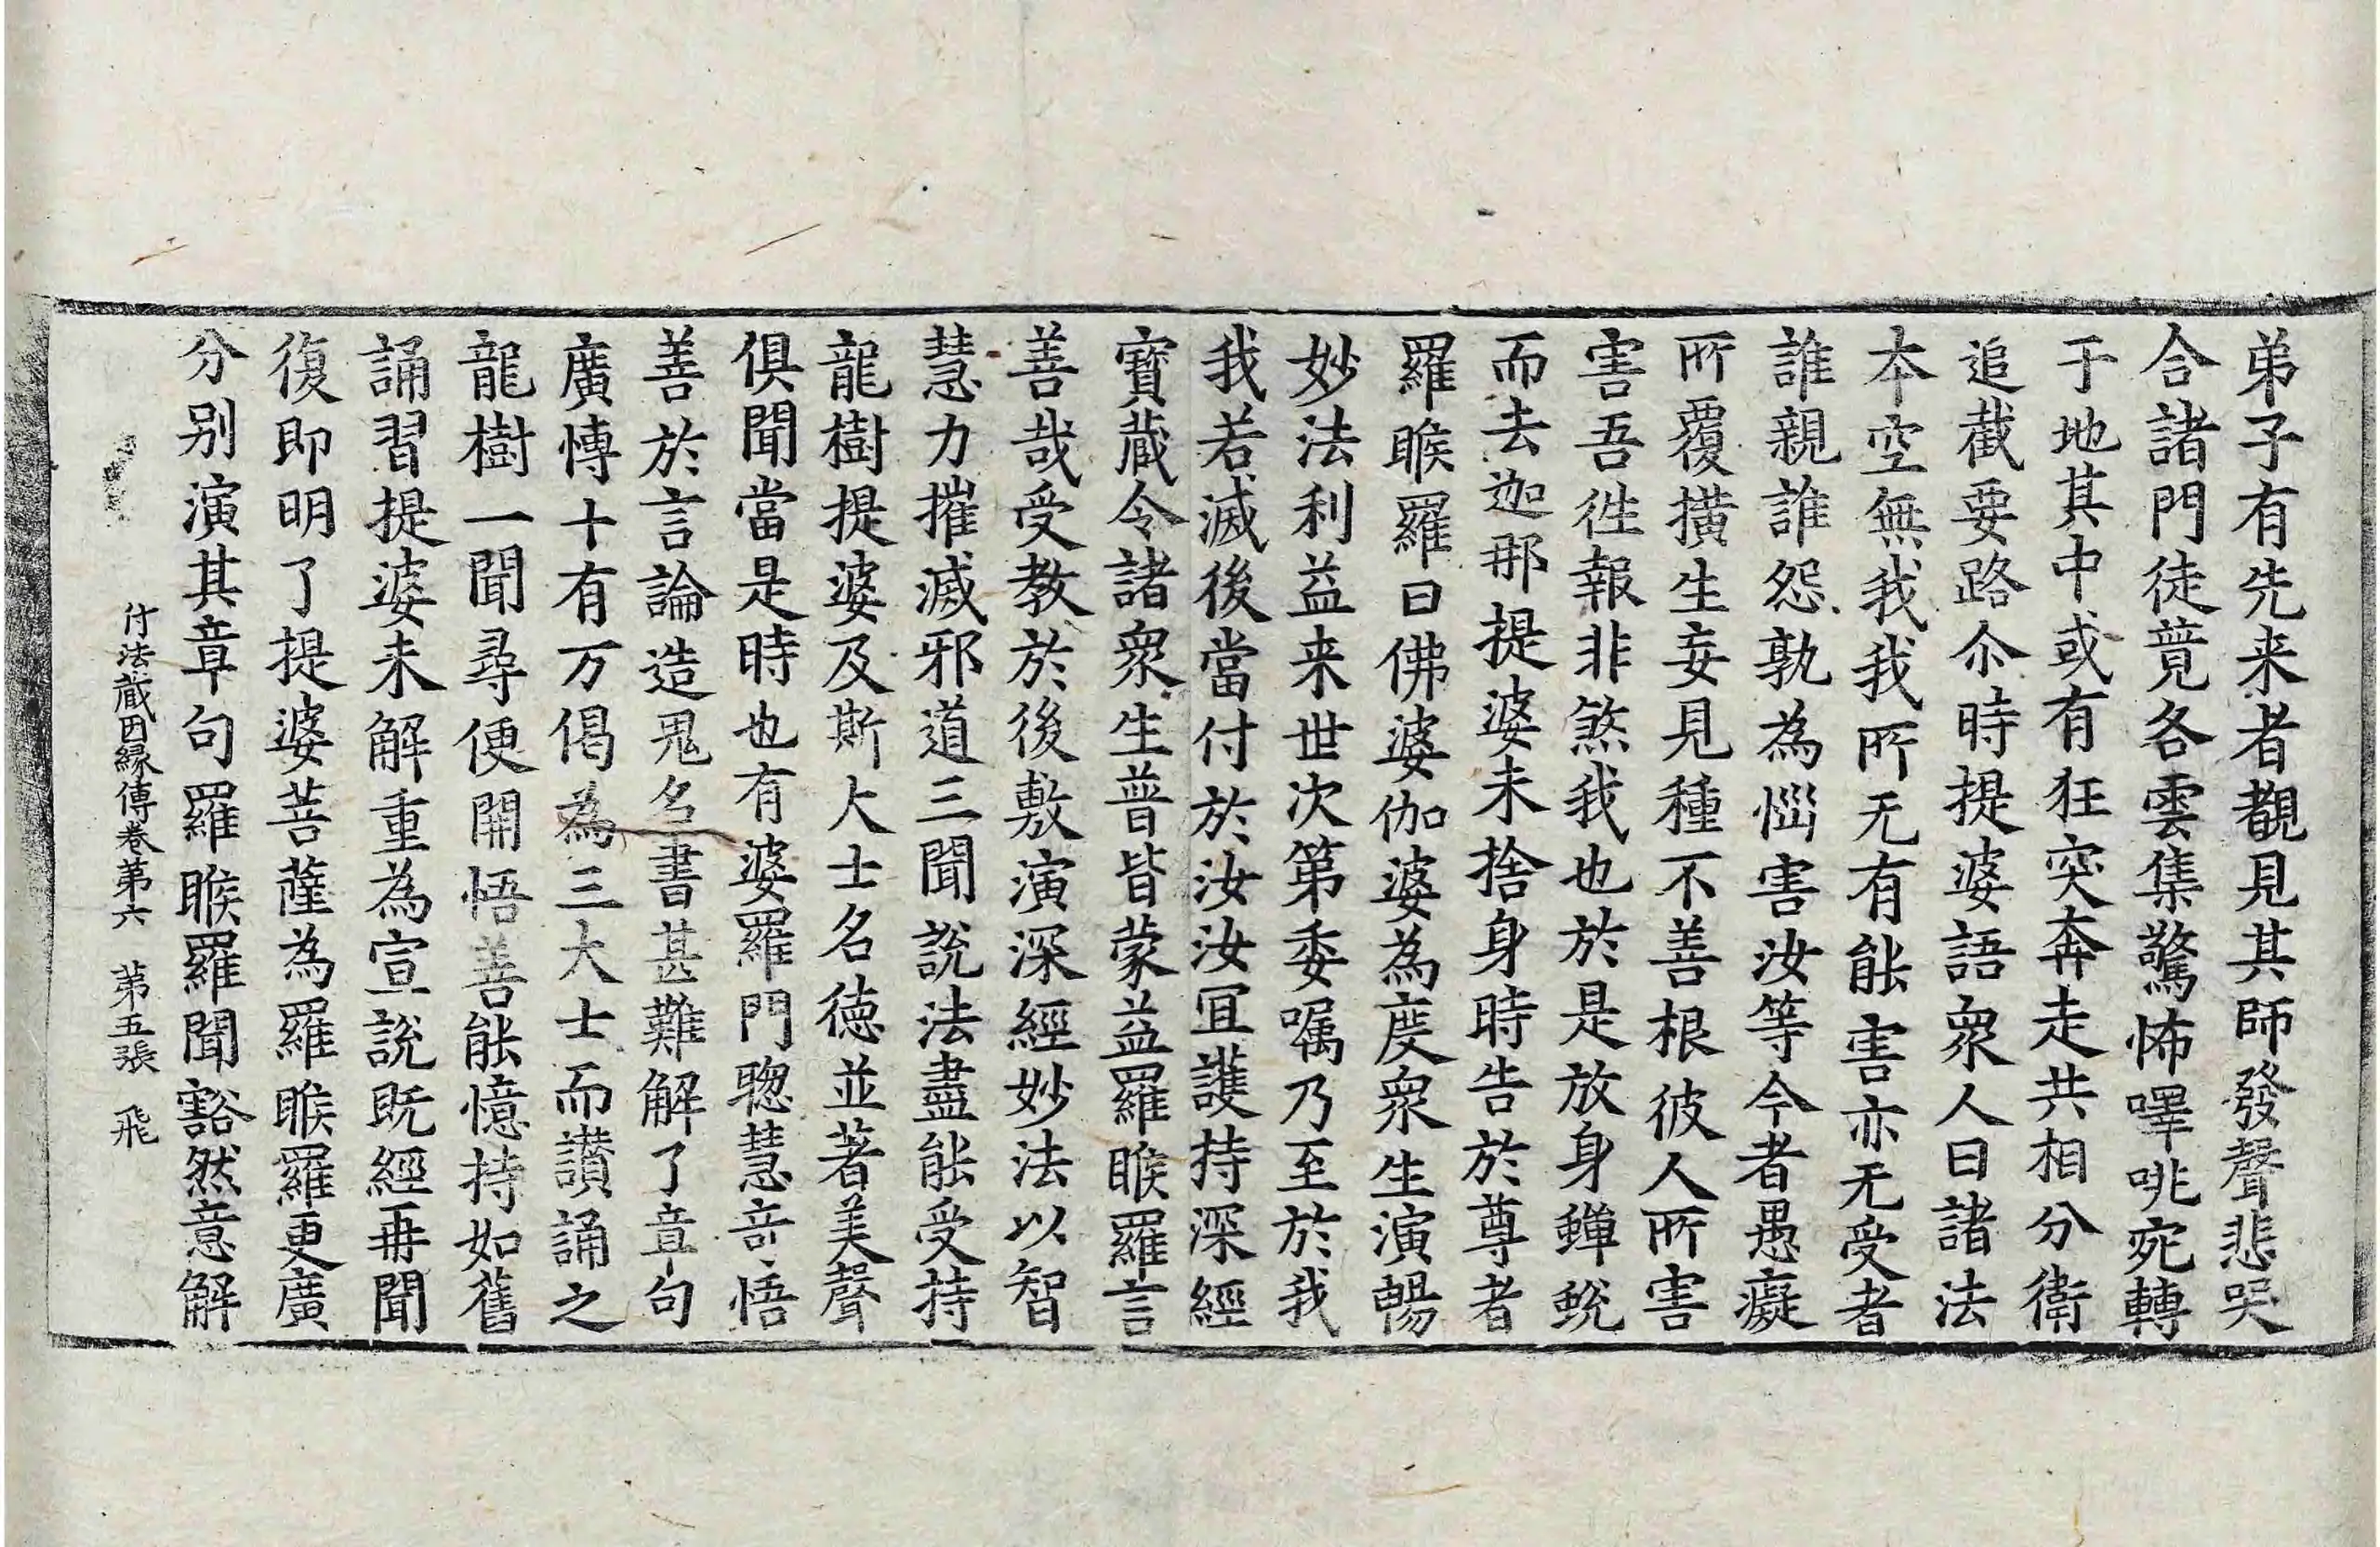 弟子有先来者覩見其師發聲悲哭
合諸門徒竟各雲集驚怖嘷咷宛轉
于地其中或有狂突奔走共相分衛
追截要路尒時提婆語衆人曰諸法
本空無我我所无有能害亦无受者
誰親誰怨孰為惱害汝等今者愚癡
所覆橫生妄見種不善根彼人所害
害吾徃報非煞我也於是放身蟬蛻
而去迦那提婆未捨身時告於尊者
羅睺羅曰佛婆伽婆為度衆生演暢
妙法利益来世次第委嘱乃至於我
我若滅後當付於汝汝冝護持深經
寳蔵令諸衆生普皆蒙益羅睺羅言
善哉受教於後敷演深經妙法以智
慧力摧滅邪道三聞說法盡能受持
龍樹提婆及斯大士名德並著美聲
俱聞當是時也有婆羅門聦慧竒悟
善於言論造鬼名書甚難解了章句
廣愽十有万偈為三大士而讃誦之
龍樹一聞尋便開悟善能憶持如舊
誦習提婆未解重為宣說旣經再聞
復即明了提婆菩薩為羅睺羅更廣
分别演其章句羅睺羅聞豁然意解
付法蔵因縁傳卷第六　第五張　飛